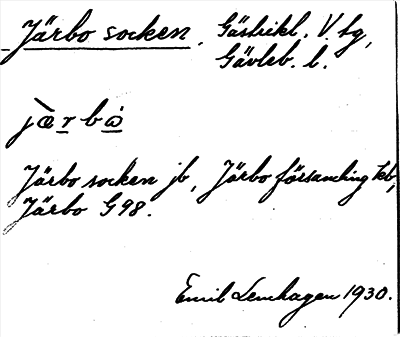 Järbo socken, Gästrikl. V. tg,
Gävleb. l.
jæ̀rbω
Järbo socken jb, Järbo församling kb,
Järbo G98.
Emil Lenhagen 1930.